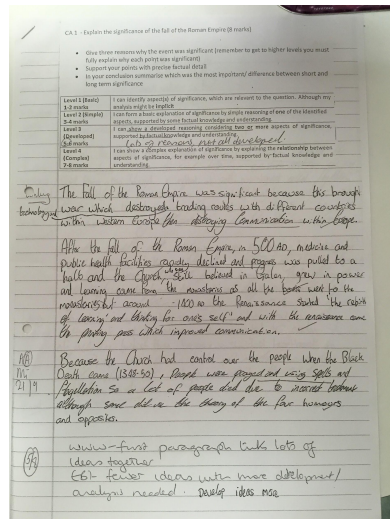 CA.1 - Explain the significance of the fall of the Roman Empire (8 marks)
Give three reasons why the event was significant (remember to get to higher levels you must
fully explain why each point was significant)
Support your points with precise factual detail
In your conclusion summarise which was the most important/ difference between short and
long term significance
Level 1 (Basic)
1-2 marks
I can identify aspect(s) of significance, which are relevant to the question. Although my
analysis might be implicit
Level 2 (Simple)
3-4 marks
I can form a basic explanation of significance by simple reasoning of one of the identified
aspects, supported by some factual knowledge and understanding.
Level 3
(Developed)
5-6 marks
I can show a developed reasoning considering two or more aspects of significance,
supported by factual knowledge and understanding
lots of reasons, not all developed
Level 4
(Complex)
7-8 marks
I can show a complex explanation of significance by explaining the relationship between
aspects of significance, for example over time, supported by factual knowledge and
understanding.
technology
The Fall of the Roman Empire was significant because this brough
war which destroyed trading routes with different countries
within western Europe then destroying Communication within Europe.
After the fall of the Roman Empire, in 500 AD, medicine and
public health facilities rapidly declined and progress was pulled to a
halt and the Church who still believed in Galen, grew in power
and learning came from the monastories as all the books went to the
monastories but around 1400 the Renaissance started 'the rebith
of learning' and thinking for one's self' and with the renaissance came
the printing press which improved communication.
Because the Church had control over the people when the Black
Death came (1348-50), People were prayed and using spells and
so a lot of people died due to incorrect treatment
although some did use the theory of the four humours
and opposites.
21/9
WWW - first paragraph links lots of
ideas together
EBI - fewer ideas with more development/
analysis needed. Develop ideas more